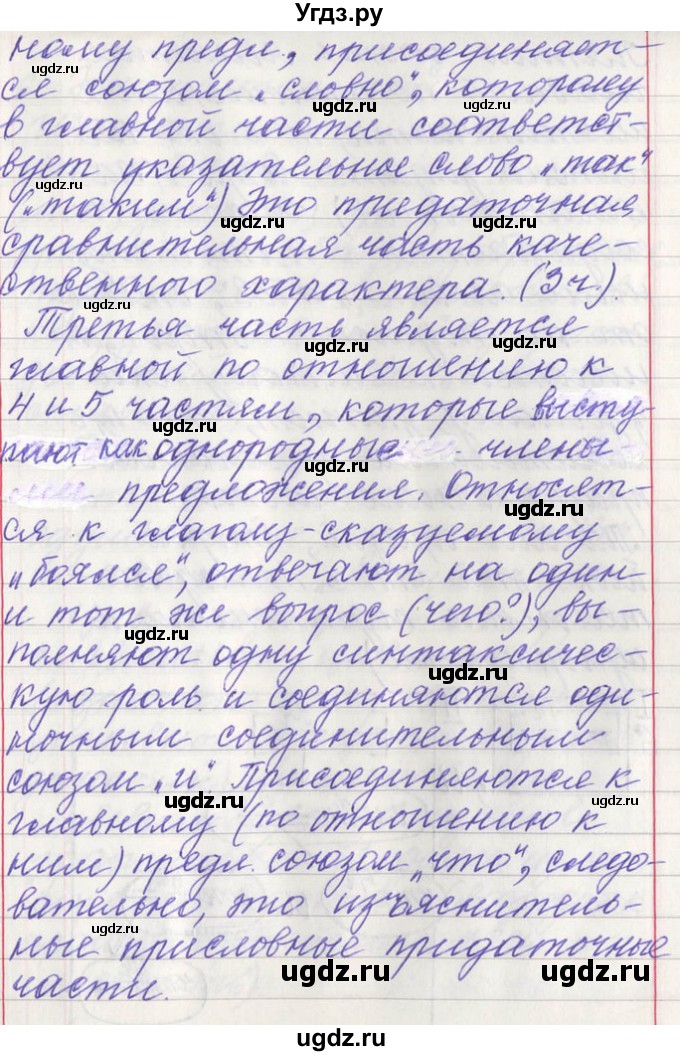 Угдз.ру
ному предл., присоединяет-
ся союзом „словно", которому
в главной части соответст-
вует указательное слово „так"
(„таким") Это придаточная
сравнительная часть каче-
ственного характера. (3ч.).
Третья часть является
главной по отношению к
4 и 5 частям, которые высту-
пают как однородные члены
предложения. Относят-
ся к глаголу-сказуемому
„боялся", отвечают на один
и тот же вопрос (чего?), вы-
полняют одну синтаксичес-
кую роль и соединяются оди-
ночным соединительным
союзом „и". Присоединяются к
главному (по отношению к
ним) предл. союзом „что", следо-
вательно, это изъяснитель-
ные присловные придаточные
части.
ugdz.ru